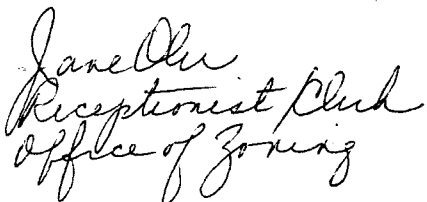 Jane Oler
Receptionist/Clerk
Office of Zoning